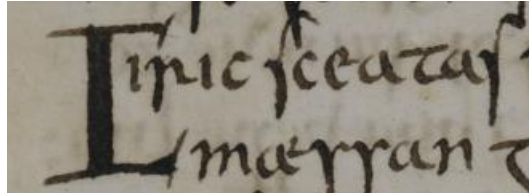 Ciric sceatas
mæssan